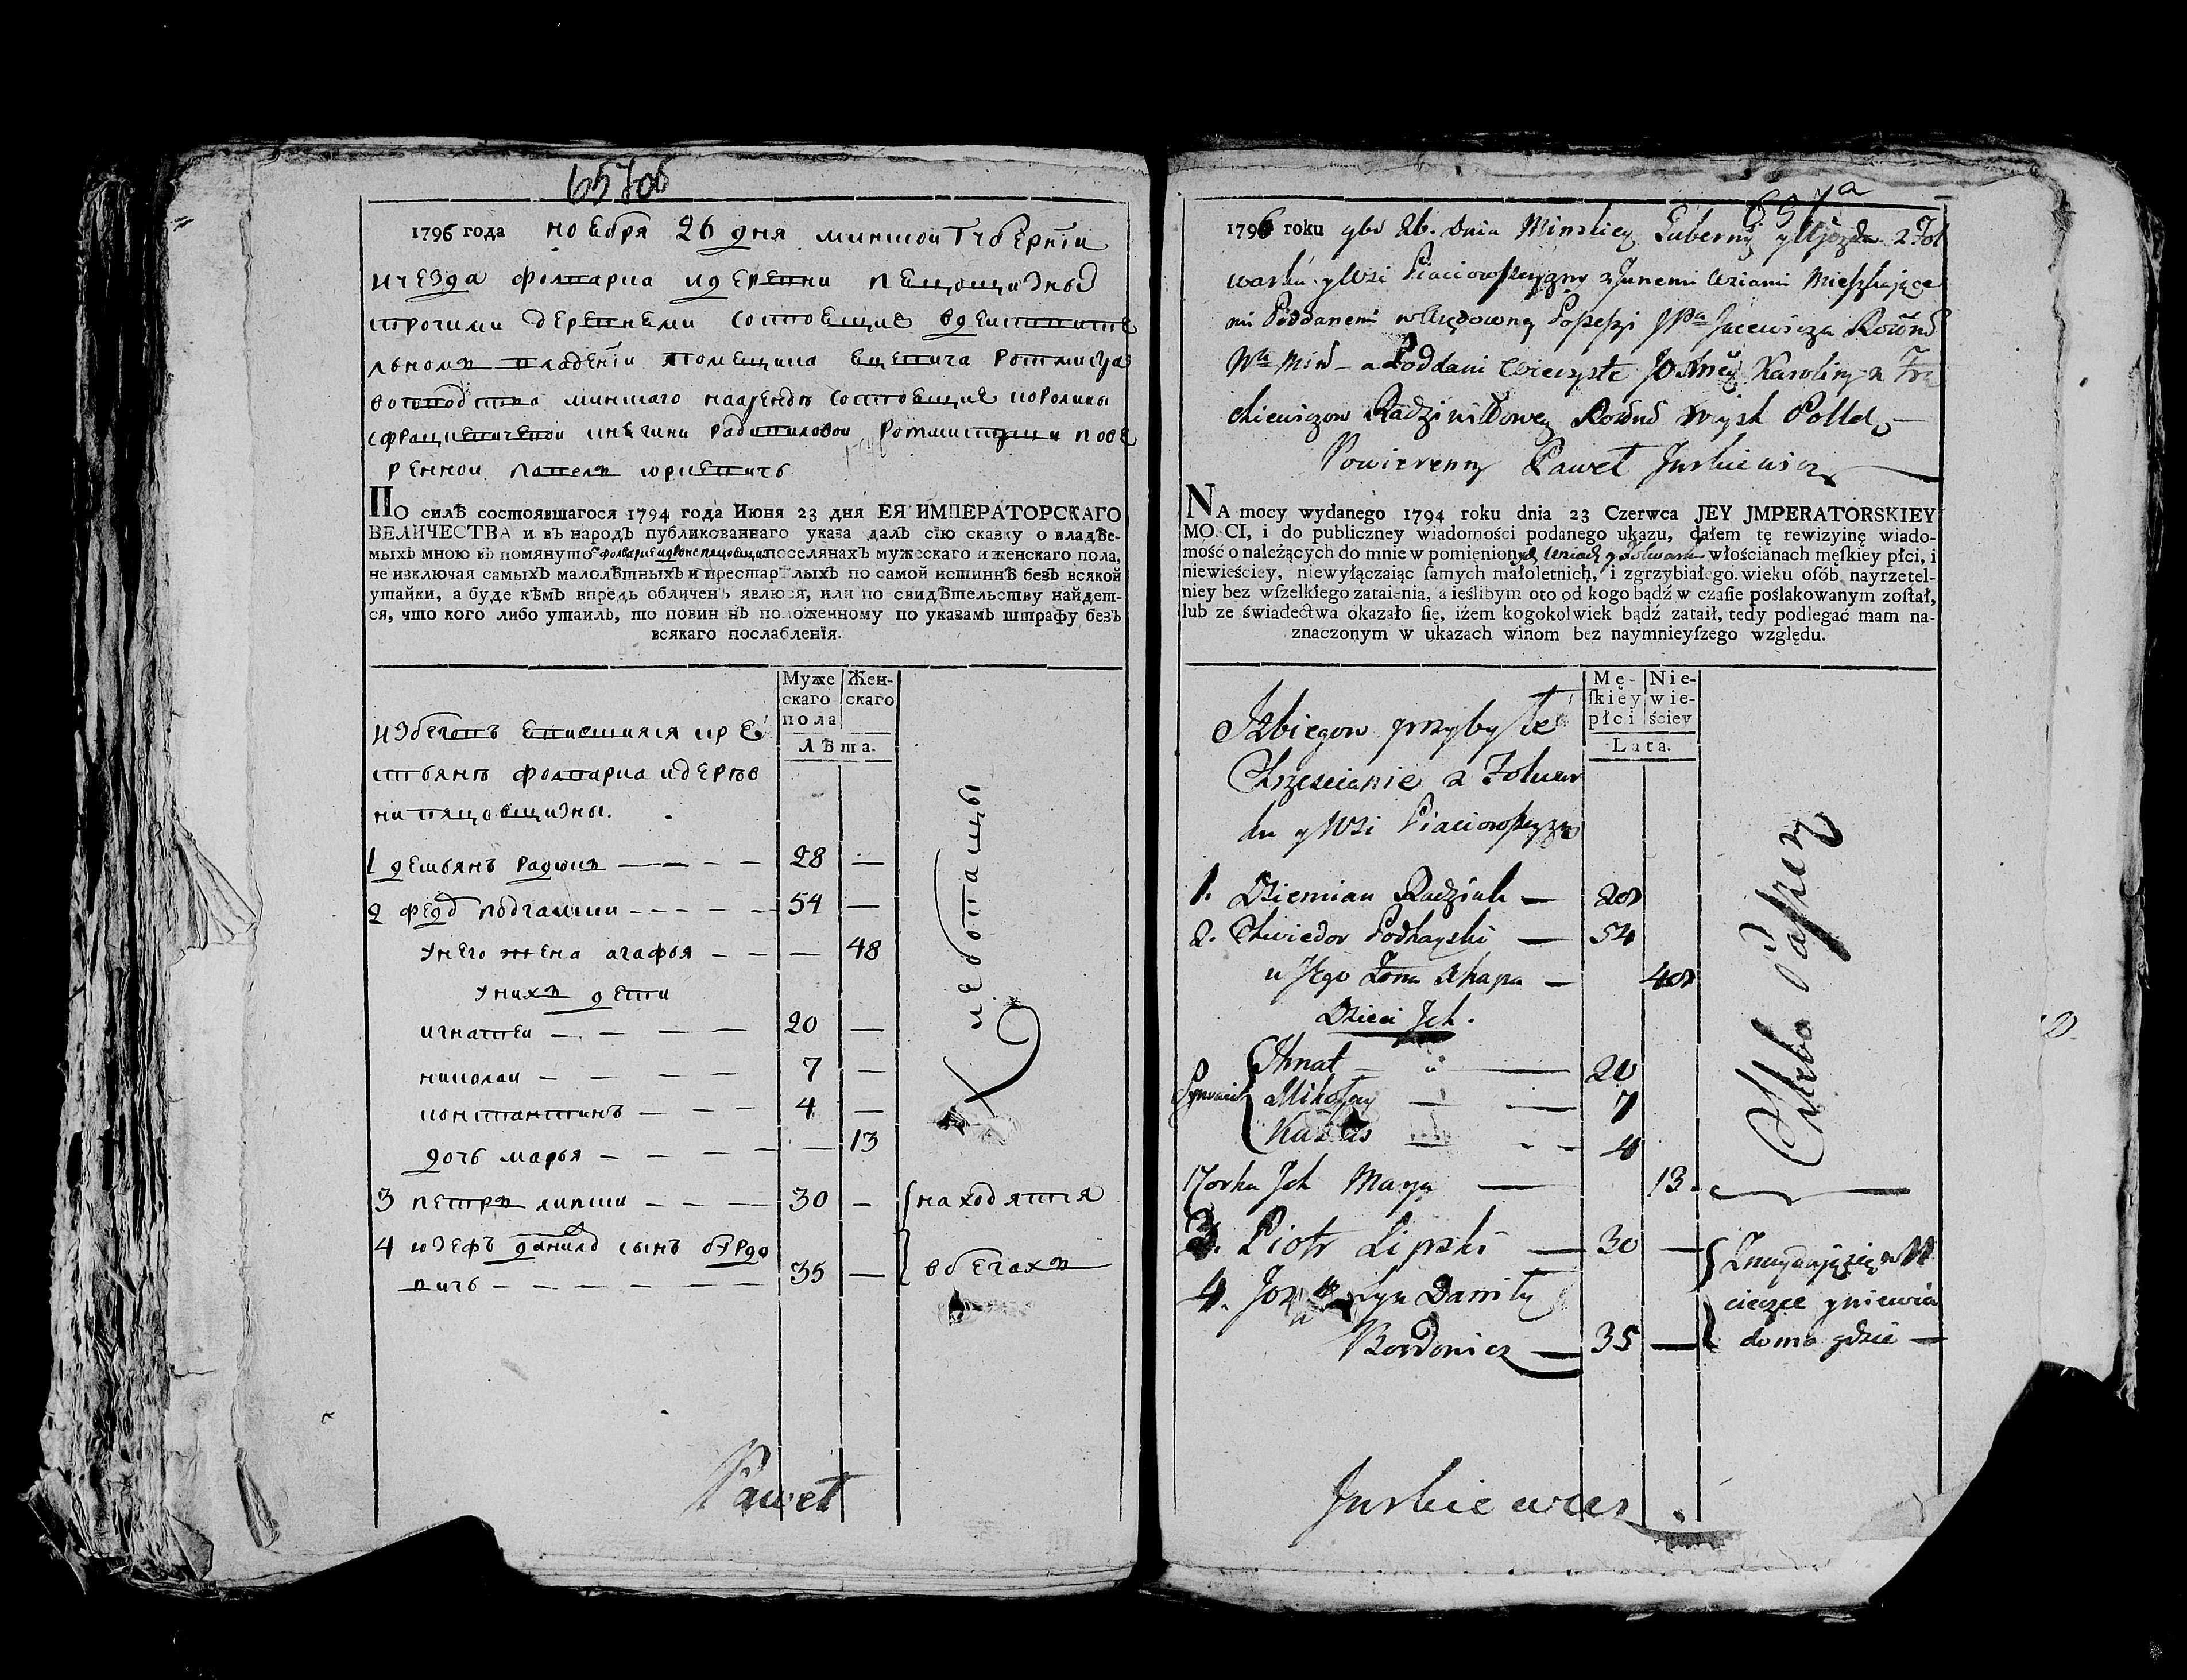 657об
1796 года ноебря 26 дня минской губернїи
и уезда фолварка и деревни пецовщизны
с прочими деревнеми состоещие в действите
льном владенїи помещика ецевича ротмистра
воеводства минскаго на арендѣ состоещие королины
с францкевичевой княгини радзивиловой ротмистрши пове
ренной павелъ юркевичь
По силѣ состоявшагося 1794 года Июня 23 дня ЕЯ ИМПЕРАТОРСКАГО
ВЕЛИЧЕСТВА и въ народъ публикованнаго указа далъ сїю сказку о владѣе-
мыхъ мною въ помянуто поселянахъ мужескаго и женскаго пола,
не изключая самыхъ малолѣтныхъ и престарѣлыхъ по самой истиннѣ безъ всякой
утайки, а буде кѣмъ впредь обличенъ явлюся, или по свидѣтельству найдет-
ся, что кого либо утаилъ, то повиненъ положенному по указамъ штрафу безъ
всякаго послабленїя.
Муже скаго пола
Жен- скаго
Лѣта.
из беговъ евившияся кре
стьянѣ фолварка и деревѣ
ни пяцовщизны.
1 демьянъ радюкъ — 28 —
2 федор подгаиски — 54 —
у него жена агафья — — 48
у нихъ дети
игнатеи — 20 —
николаи — 7 —
константинъ — 4 —
дочь марья — — 13
хлебопашцы
3 петръ липски — 30 — находятся
4 юзефъ данила сынъ бурдо
вичь — 35 — в бегахъ
Paweł
657a
1796 roku 9br 26. dnia Minskiey Guberny y Ujezdu z Fol
warku y Wsi Piaciowszczyzny z Jnnemi Wsiami Mieszkające
mi Poddanemi w Rządowney Possessyi JPa Jacewicza Rotms
Wa Mins – a Poddani Wieczyste JOxney Karoliny z Fra
ckiewiczow Radziwiłłowey Rotms Woysk Polld
Powierenny Paweł Jurkiewicz
NA mocy wydanego 1794 roku dnia 23 Czerwca JEY JMPERATORSKIEY
MOŚCI, i do publiczney wiadomości podanego ukazu, dałem tę rewizyinę wiado-
mość o należących do mnie w pomienionych Wsiach y Folwark włościanach męſkiey płci, i
niewieściey, niewyłączaiąc ſamych małoletnich, i zgrzybiałego wieku oſób nayrzetel-
niey bez wſzelkiego zataienia, a ieślibym oto od kogo bądź w czaſie poślakowanym zoſtał,
lub ze świadectwa okazało ſię, iżem kogokolwiek bądź zataił, tedy podlegać mam na-
znaczonym w ukazach winom bez naymnieyſzego względu.
Mę- ſkiey płci
Nie- wie- ściey
Lata.
Jzbiegow przybyłe
Chrzescianie z Folwar
ku y Wsi Piaciowszczyzn
1. Dziemian Radziuk — 28
2. Chwiedor Podhayski — 54
u Jego Żona Ahapa — 48
Dzieci Jch.
Synowie
Jhnat — 20
Mikołay — 7
Kastus — 4
Corka Jch Marya — 13.
Chlebo Paszcy
3. Piotr Lipski — 30 — Znaydujące się w U
4. Joz Syn Daniły cieczce y niewia
Bordowicz — 35 — domo gdzie —
Jurkiewicz